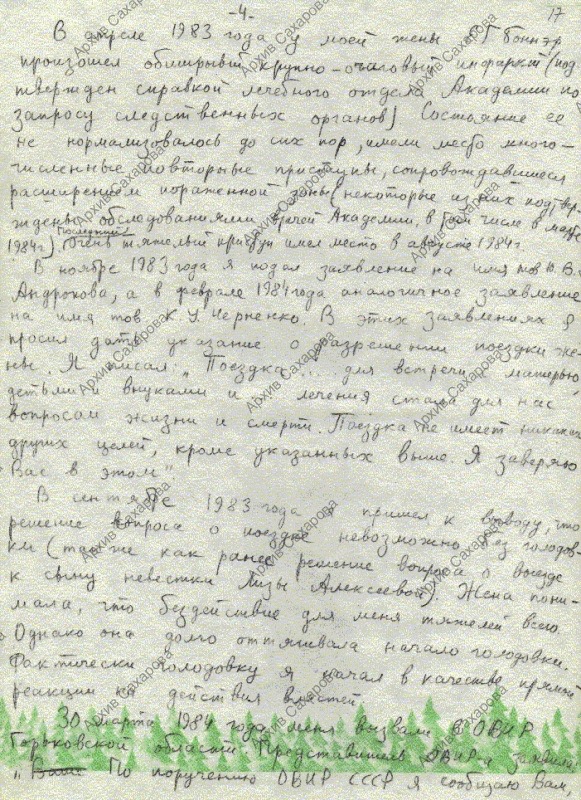 -4-
17
В апреле 1983 года у моей жены Е Г Боннэр
произошел обширный крупно-очаговый инфаркт (под
твержден справкой лечебного отдела Академии по
запросу следственных органов) Состояние ее
не нормализовалось до сих пор, имели место много-
численные повторные приступы, сопровождавшиеся
расширением пораженной зоны (некоторые из них подтвер
ждены обследованиями врачей Академии, в том числе в марте
1984г) Последний Очень тяжелый приступ имел место в августе 1984г.
В ноябре 1983 года я подал заявление на имя тов Ю. В.
Андропова, а в феврале 1984 года аналогичное заявление
на имя тов К У. Черненко. В этих заявлениях я
просил дать указание о разрешении поездки же-
ны. Я писал: "Поездка ... для встречи с матерью,
детьми и внуками и лечения стала для нас
вопросом жизни и смерти. Поездка не имеет никаких
других целей, кроме указанных выше. Я заверяю
Вас в этом"
В сентябре 1983 года я пришел к выводу, что
решение вопроса о поездке невозможно без голодов-
ки (так же как ранее решение вопроса о выезде
к сыну невестки Лизы Алексеевой). Жена пони-
мала, что бездействие для меня тяжелей всего.
Однако она долго оттягивала начало голодовки.
Фактически голодовку я начал в качестве прямой
реакции на действия властей
30 марта 1984 года меня вызвали в ОВИР
Горьковской области. Представитель ОВИР-а заявила:
"Ваше По поручению ОВИР СССР я сообщаю Вам,
Архив Сахарова